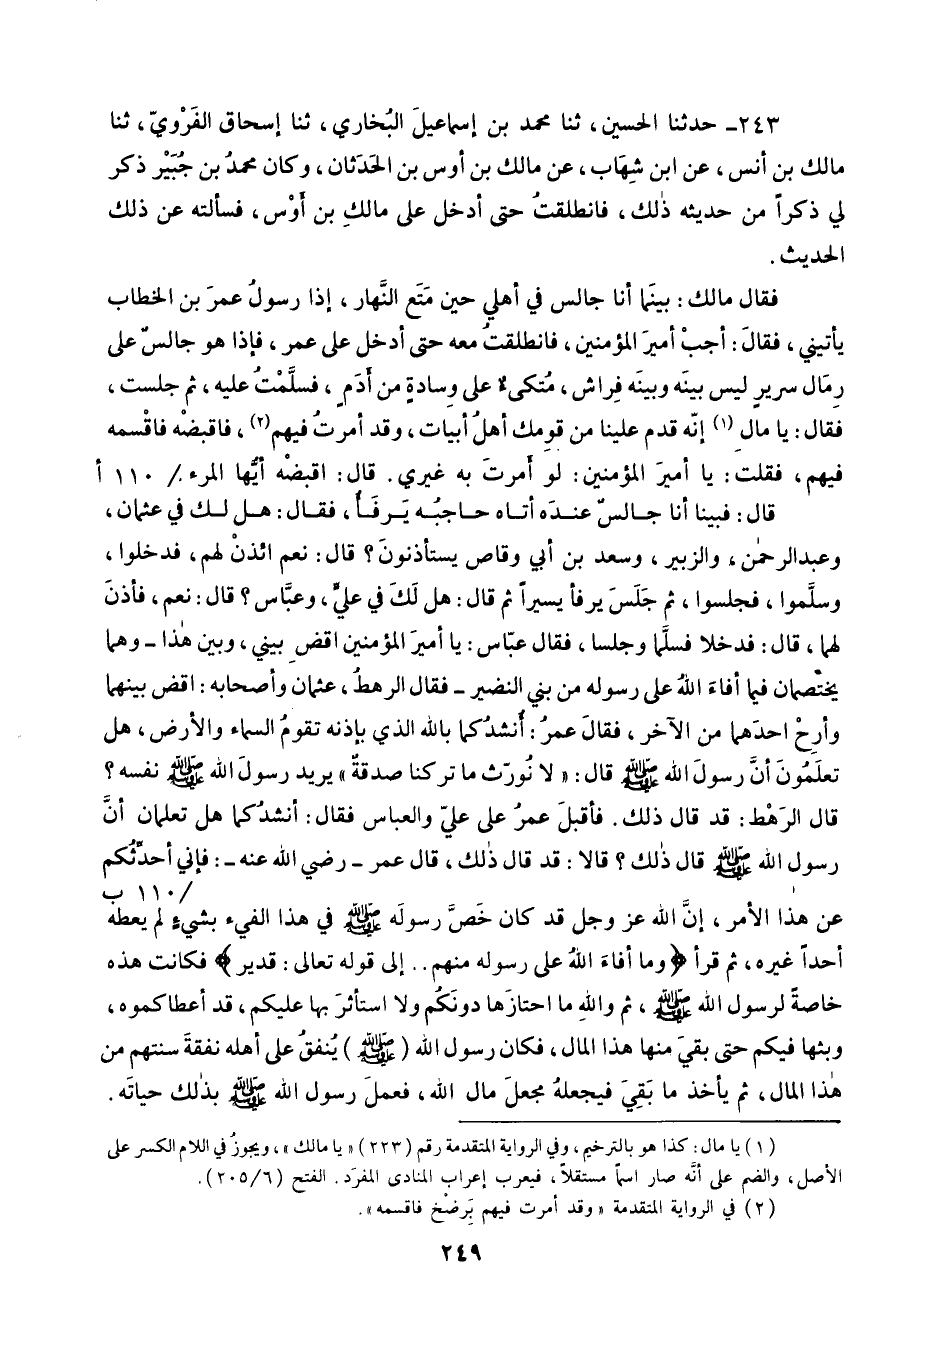 ٢٤٣ـ حدثنا الحسين، ثنا محمد بن إسماعيلَ البُخاري، ثنا إسحاق الفَرْويّ، ثنا
مالك بن أنس، عن ابن شِهَاب، عن مالك بن أوس بن الحَدَثان، وكان محمدُ بن جُبَيْر ذكر
لي ذكراً من حديثه ذٰلك، فانطلقتُ حتى أدخل على مالكِ بن أَوْس، فسألته عن ذلك
الحديث.
فقال مالك: بينَما أنا جالس في أهلي حين مَتَع النَّهار، إذا رسولُ عمرَ بن الخطاب
يأتيني، فقالَ: أجبْ أميرَ المؤمنين، فانطلقتُ معه حتى أدخل على عمر، فإذا هو جالسٌ على
رِمَال سريرٍ ليس بينَه وبينَه فِراش، مُتكىءٌ على وِسادةٍ من أَدَمٍ، فسلَّمْتُ عليه، ثم جلست،
فقال: يا مالِ (١) إنّه قدم علينا من قومِك أهلُ أبيات، وقد أمرتُ فيهم(٢)، فاقبضْه فاقْسمه
فيهم، فقلت: يا أميرَ المؤمنين: لو أَمرتَ به غيري. قال: اقبضْه أيُّها المرء./ ١١٠ أ
قال: فبينا أنا جالسٌ عنده أتاه حاجبُه يَرفَأُ، فقال: هل لك في عثمان،
وعبدالرحمٰن، والزبير، وسعد بن أبي وقاص يستأذنونَ؟ قال: نعم ائذنْ لهم، فدخلوا،
وسلَّموا، فجلسوا، ثم جَلَسَ يرفأ يسيراً ثم قال: هل لَكَ في عليٍّ، وعبَّاس؟ قال: نعم، فأذنَ
لهما، قال: فدخلا فسلَّما وجلسا، فقال عبّاس: يا أميرَ المؤمنين اقضِ بيني، وبين هٰذا ـ وهما
يختَصمان فيما أفاءَ اللهُ على رسوله من بني النضير ـ فقال الرهطُ، عثمان وأصحابه: اقض بينهما
وأرِحْ احدَهما من الآخر، فقالَ عمرُ: أَنشدُكما بالله الذي بإذنه تقومُ السماء والأرض، هل
تعلَمُونَ أنَّ رسولَ الله ﷺ قال: «لا نُورَث ما تركنا صدقةٌ» يريد رسولَ الله ﷺ نفسه؟
قال الرَهْط: قد قال ذلك. فأقبلَ عمرُ على عليّ والعباس فقال: أنشدُكما هل تعلمان أنَّ
رسول الله ﷺ قال ذٰلك؟ قالا: قد قال ذٰلك، قال عمر ـ رضي الله عنه ـ: فإني أحدِّثُكم
/١١٠ ب
عن هذا الأمر، إنَّ الله عز وجل قد كان خَصَّ رسولَه ﷺ في هذا الفيء بشيءٍ لم يعطه
أحداً غيره، ثم قرأ ﴿وما أفاءَ اللهُ على رسوله منهم.. إلى قوله تعالى: قدير﴾ فكانت هذه
خاصةً لرسول الله ﷺ، ثم واللهِ ما احتازَها دونَكُم ولا استأثرَ بها عليكم، قد أعطاكموه،
وبثها فيكم حتى بقيَ منها هذا المال، فكان رسول الله (ﷺ) يُنفقُ على أهله نفقةَ سنتهم من
هٰذا المال، ثم يأخذ ما بَقِيَ فيجعلهُ مجعلَ مال الله، فعملَ رسول الله ﷺ بذٰلك حياتَه.
(١) يا مال: كذا هو بالترخيم، وفي الرواية المتقدمة رقم (٢٢٣) «يا مالك»، ويجوزُ في اللام الكسر على
الأصل، والضم على أنَّه صار اسماً مستقلاً، فيعرب إعراب المنادى المفرَد. الفتح (٢٠٥/٦).
(٢) في الرواية المتقدمة «وقد أمرت فيهم بَرضْخٍ فاقسمه».
٢٤٩